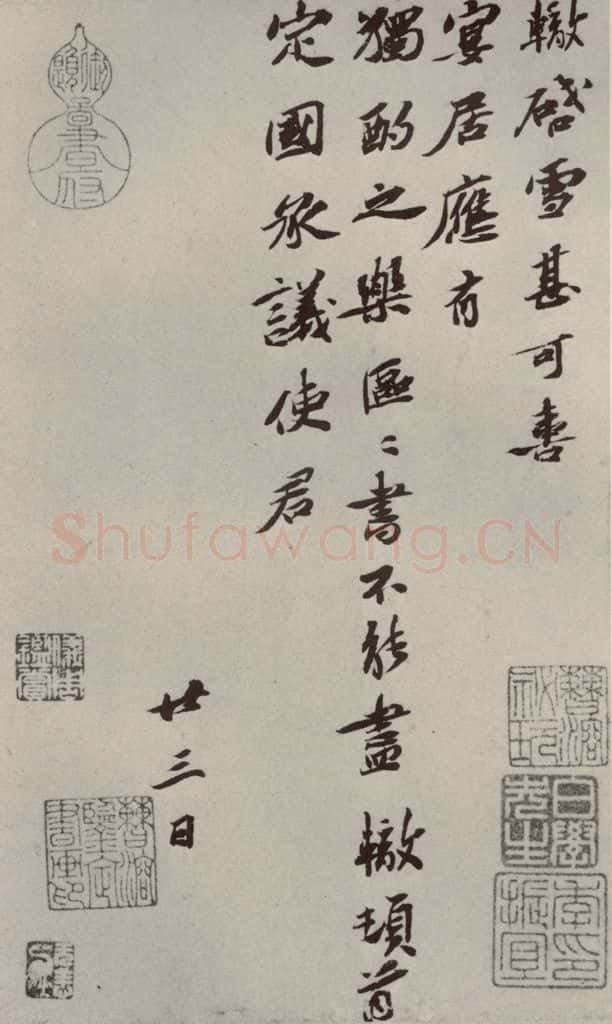 轍啓雪甚可喜
宴居應有
獨酌之樂區〻書不能盡 轍頓首
定國承議使君
廿三日
Shufawang.CN